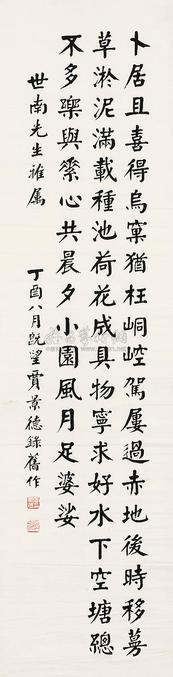 卜居且喜得烏窠猶枉崆峒駕屢過赤地後時移蔓
草淤泥滿載種池荷花成具物寧求好水下空塘總
不多樂與縈心共晨夕小園風月足婆娑
世南先生雅屬
丁酉八月既望賈景德錄舊作